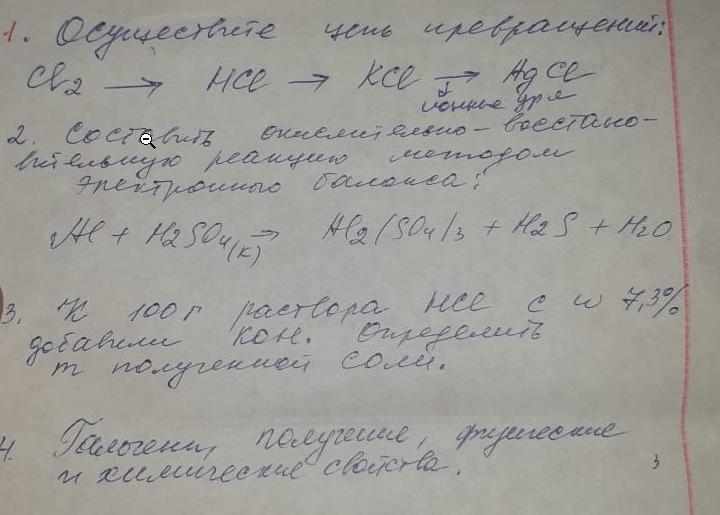 1. Осуществите цепь превращений:
Cl2 → HCl → KCl → AgCl
ионные ур-я
2. Составить окислительно-восстано-
вительную реакцию методом
электронного баланса:
Al + H2SO4(к) → Al2(SO4)3 + H2S + H2O
3. К 100 г раствора HCl с ω 7,3%
добавили KOH. Определить
m полученной соли.
4. Галогены, получение, физические
и химические свойства.
3